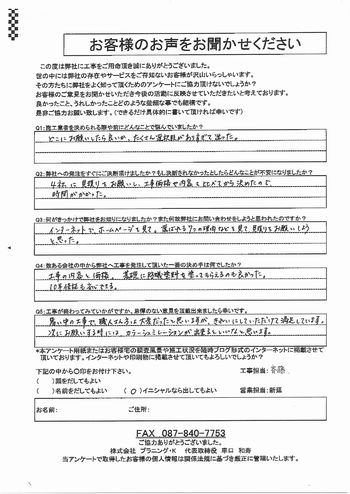 お客様のお声をお聞かせください
この度は弊社に工事をご用命頂き誠にありがとうございました。
世の中には弊社の存在やサービスをご存知ないお客様が沢山いらっしゃいます。
その方たちに弊社をよく知って頂くためのアンケートにご協力頂けないでしょうか?
お客様のご意見をお聞かせいただき今後の活動に反映させていただきたいと考えております。
良かったこと、うれしかったことどのような些細な事でも結構です。
是非ご協力お願い致します。(できるだけ具体的に書いて頂ければ幸いです)
Q1:施工業者を決められる際や前にどんなことで悩んでいましたか?
どこにお願いしたら良いか、たくさん選択肢がありすぎて迷った。
Q2:弊社への発注をすぐにご決断頂けましたか?もし決断されなかったとしたらどんなことが不安になりましたか?
4社に見積りをお願いし、工事価格や内容を比べてから決めたので、
時間がかかった。
Q3:何がきっかけで弊社をお知りになりましたか?また何故弊社にお問い合わせをしようと思われたのですか?
インターネットで、ホームページを見て。選ばれる7つの理由などを見て、見積りをお願いしよう
と思った。
Q4:数ある会社の中から弊社へ工事を発注して頂いた一番の決め手は何でしたか?
工事の内容と価格。 基礎に防蟻塗料を塗ってもらえるのも良かった。
10年保証も安心できる。
Q5:工事が終わってみていかがですか。忌憚のない意見を頂戴出来ましたら幸いです。
暑い中の工事で、職人さん方は大変だったと思いますが、きれいにしていただけて満足しています。
次にお願いする時には、カラーシミュレーションが出来るといいなと思います。
*本アンケート用紙またはお客様宅の調査風景や施工状況を随時ブログ形式のインターネットに掲載させて
頂いております。インターネットや印刷物に掲載させて頂いてもよろしいでしょうか?
下記の中から〇印をお付け下さい。
工事担当:斉藤
( )顔をだしてもよい
( )名前をだしてもよい (〇)イニシャルなら出してもよい 営業担当:新延
お名前: ご住所:
FAX 087-840-7753
ご協力ありがとうございました。
株式会社 プラニング・K 代表取締役 車口 和寿
当アンケートで取得したお客様の個人情報は関係法規に基づき厳正に管理いたします。